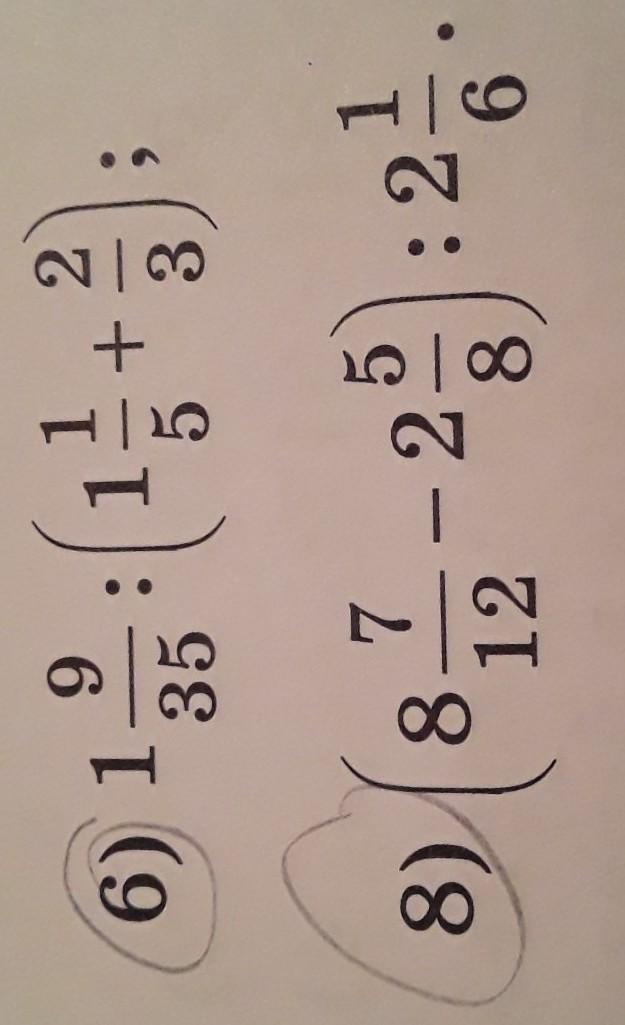 6) 1 9/35 : (1 1/5 + 2/3);
8) (8 7/12 − 2 5/8) : 2 1/6.